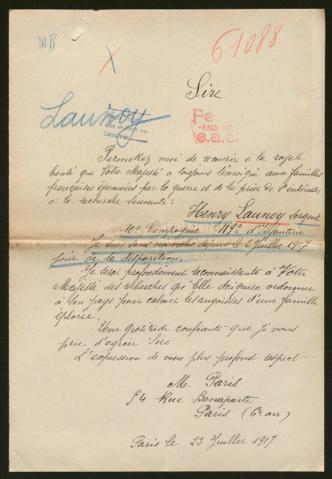 M.R
X
61088
Sire
Launoy
e.a.c.
Permettez moi de recourir à la royale
bonté que Votre Majesté a toujours témoigné aux familles
françaises éprouvées par la guerre et de la prier de s'intéresser
à la recherche suivante:
Henry Launoy Sergent
Compagnie d'Infanterie
Je suis sans nouvelles depuis le 2 juillet 1917
jour de la disparition.
Je serai profondément reconnaissante à Votre
Majesté des recherches qu'elle daignera ordonner
à Son pays pour calmer les angoisses d'une famille
éplorée.
Une gratitude confiante que je vous
prie d'agréer Sire
L'expression de mon plus profond respect
M. Paris
54 Rue Bonaparte
Paris (6e arr)
Paris le 23 Juillet 1917